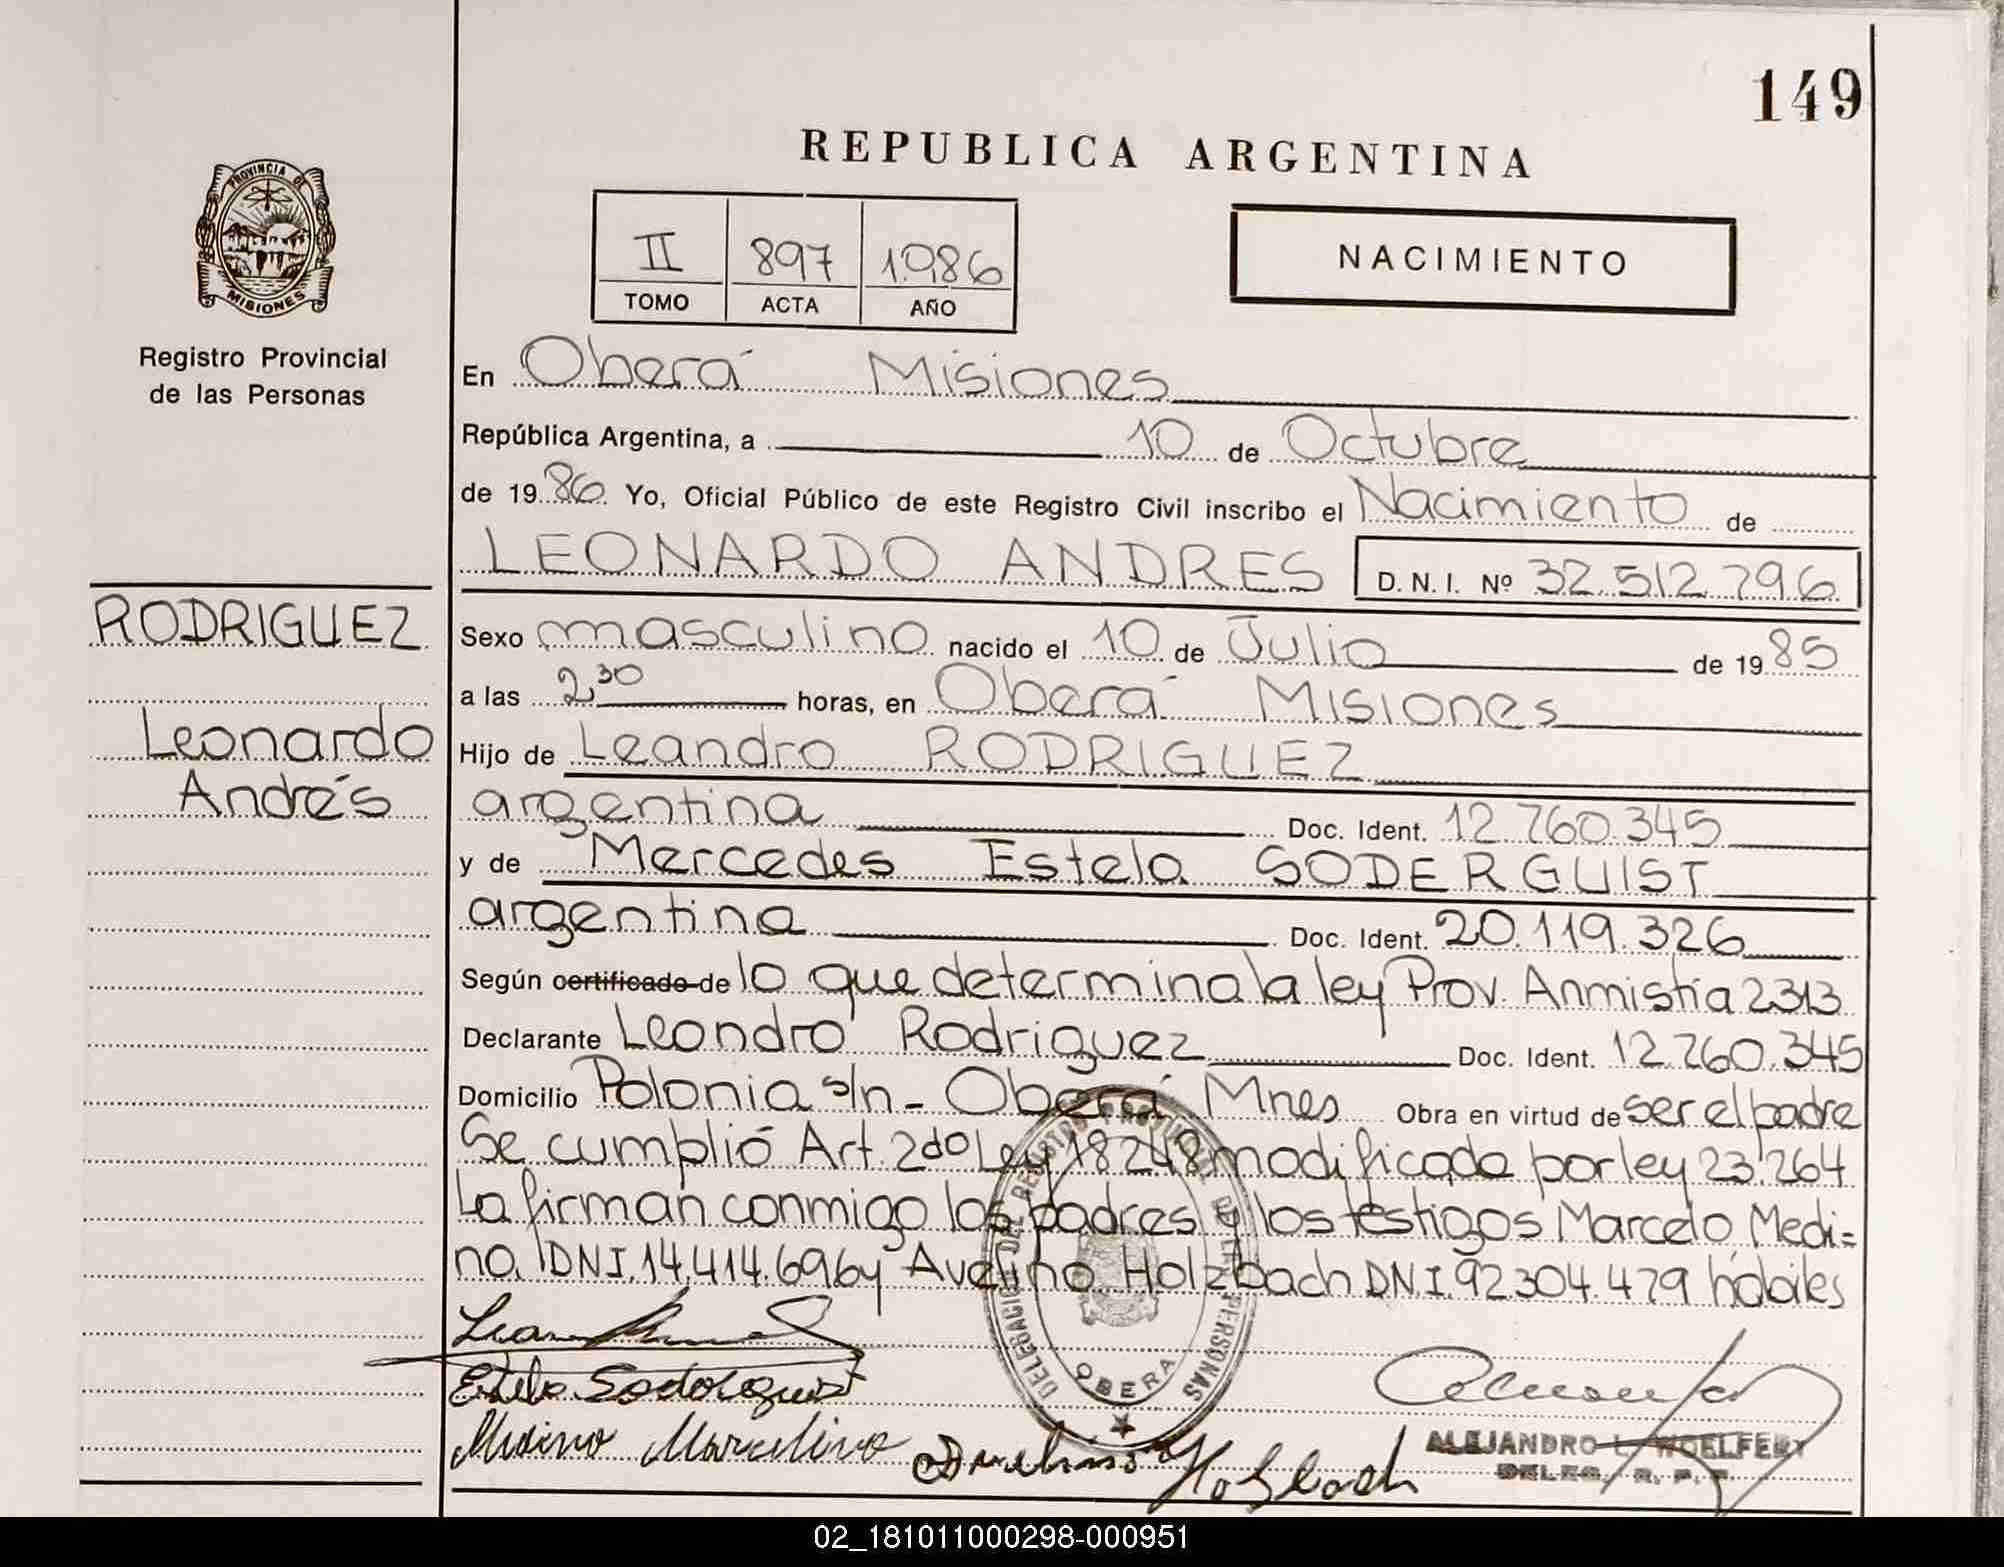 149
REPUBLICA ARGENTINA
PROVINCIA DE
MISIONES
Registro Provincial
de las Personas
II 897 1986
TOMO ACTA AÑO
NACIMIENTO
En Oberá Misiones
República Argentina, a 10 de Octubre
de 1986 Yo, Oficial Público de este Registro Civil inscribo el Nacimiento de
LEONARDO ANDRES D. N. I. Nº 32.512.796
RODRIGUEZ
Leonardo
Andrés
Sexo masculino nacido el 10 de Julio de 1985
a las 2,30 horas, en Oberá Misiones
Hijo de Leandro RODRIGUEZ
argentina Doc. Ident. 12.760.345
y de Mercedes Estela SODERGUIST
argentina Doc. Ident. 20.119.326
Según certificado de lo que determina la ley Prov. Anmistía 2313
Declarante Leandro Rodriguez Doc. Ident. 12.760.345
Domicilio Polonia s/n - Oberá Mnes Obra en virtud de ser el padre
Se cumplió Art. 2do Ley 18248 modificada por ley 23.264
La firman conmigo los padres y los testigos Marcelo Medi=
na DNI.14.414.696 y Avelino Holzbach DN.I.92304.479 hábiles
Estela Soderguist
Medina Marcelino
Holzbach
DELEGACION DEL REGISTRO PROVINCIAL DE LAS PERSONAS
OBERA
ALEJANDRO L. WOELFERT
DELEG. R. P. P.
02_181011000298-000951